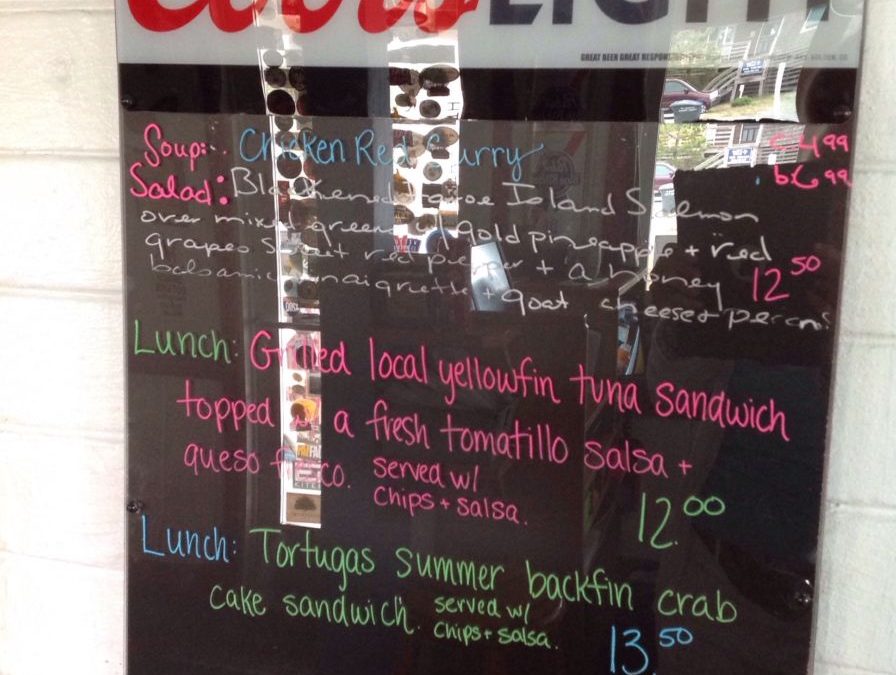 Coors LIGHT
GREAT BEER GREAT RESPONS
Soup: Chicken Red Curry c 4.99
b 6.99
Salad: Blackened Faroe Island Salmon
over mixed greens w/ gold pineapple + red
grapes sweet red pepper + a honey
balsamic vinaigrette + goat cheese + pecans
12 50
Lunch: Grilled local yellowfin tuna sandwich
topped w/ a fresh tomatillo salsa +
queso fresco. served w/
chips + salsa.
12.00
Lunch: Tortugas summer backfin crab
cake sandwich. served w/
chips + salsa.
13.50